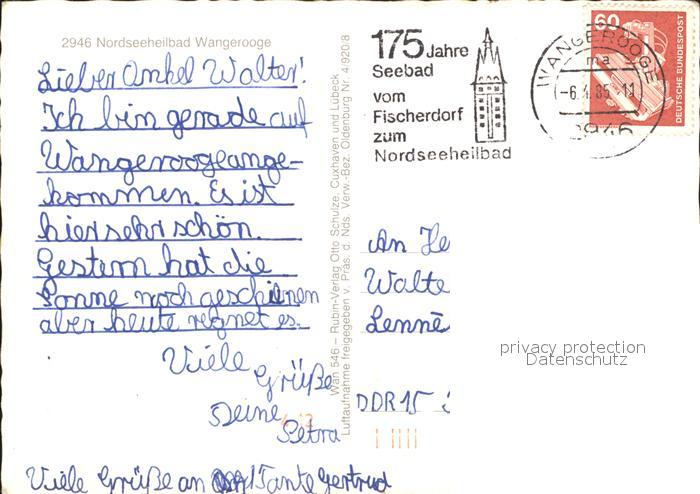 2946 Nordseeheilbad Wangerooge
Lieber Onkel Walter!
Ich bin gerade auf
Wangerooge ange-
kommen. Es ist
hier sehr schön.
Gestern hat die
Sonne noch geschienen
aber heute regnet es.
Viele
Grüße
Deine
Petra
Viele Grüße an Tante Gertrud
Wan 546 – Rubin-Verlag Otto Schulze, Cuxhaven und Lübeck
Luftaufnahme freigegeben v. Präs. d. Nds. Verw.-Bez. Oldenburg Nr. 4.920 8
175 Jahre
Seebad
vom
Fischerdorf
zum
Nordseeheilbad
WANGEROOGE
ma
-6.4.85-11
2946
60
DEUTSCHE BUNDESPOST
An He
Walte
Lenné
DDR 15
privacy protection
Datenschutz